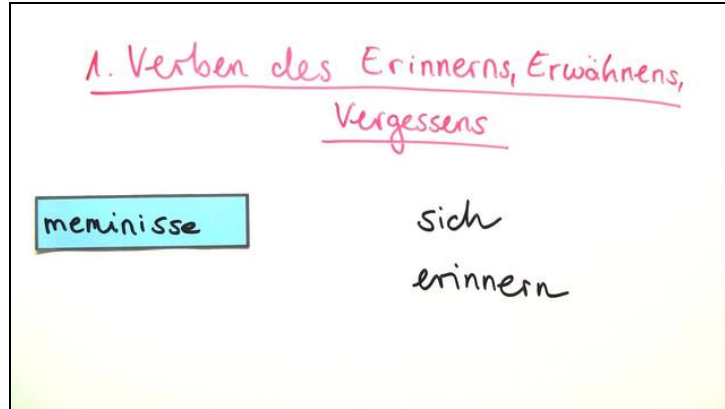 1. Verben des Erinnerns, Erwähnens,
Vergessens
meminisse
sich
erinnern